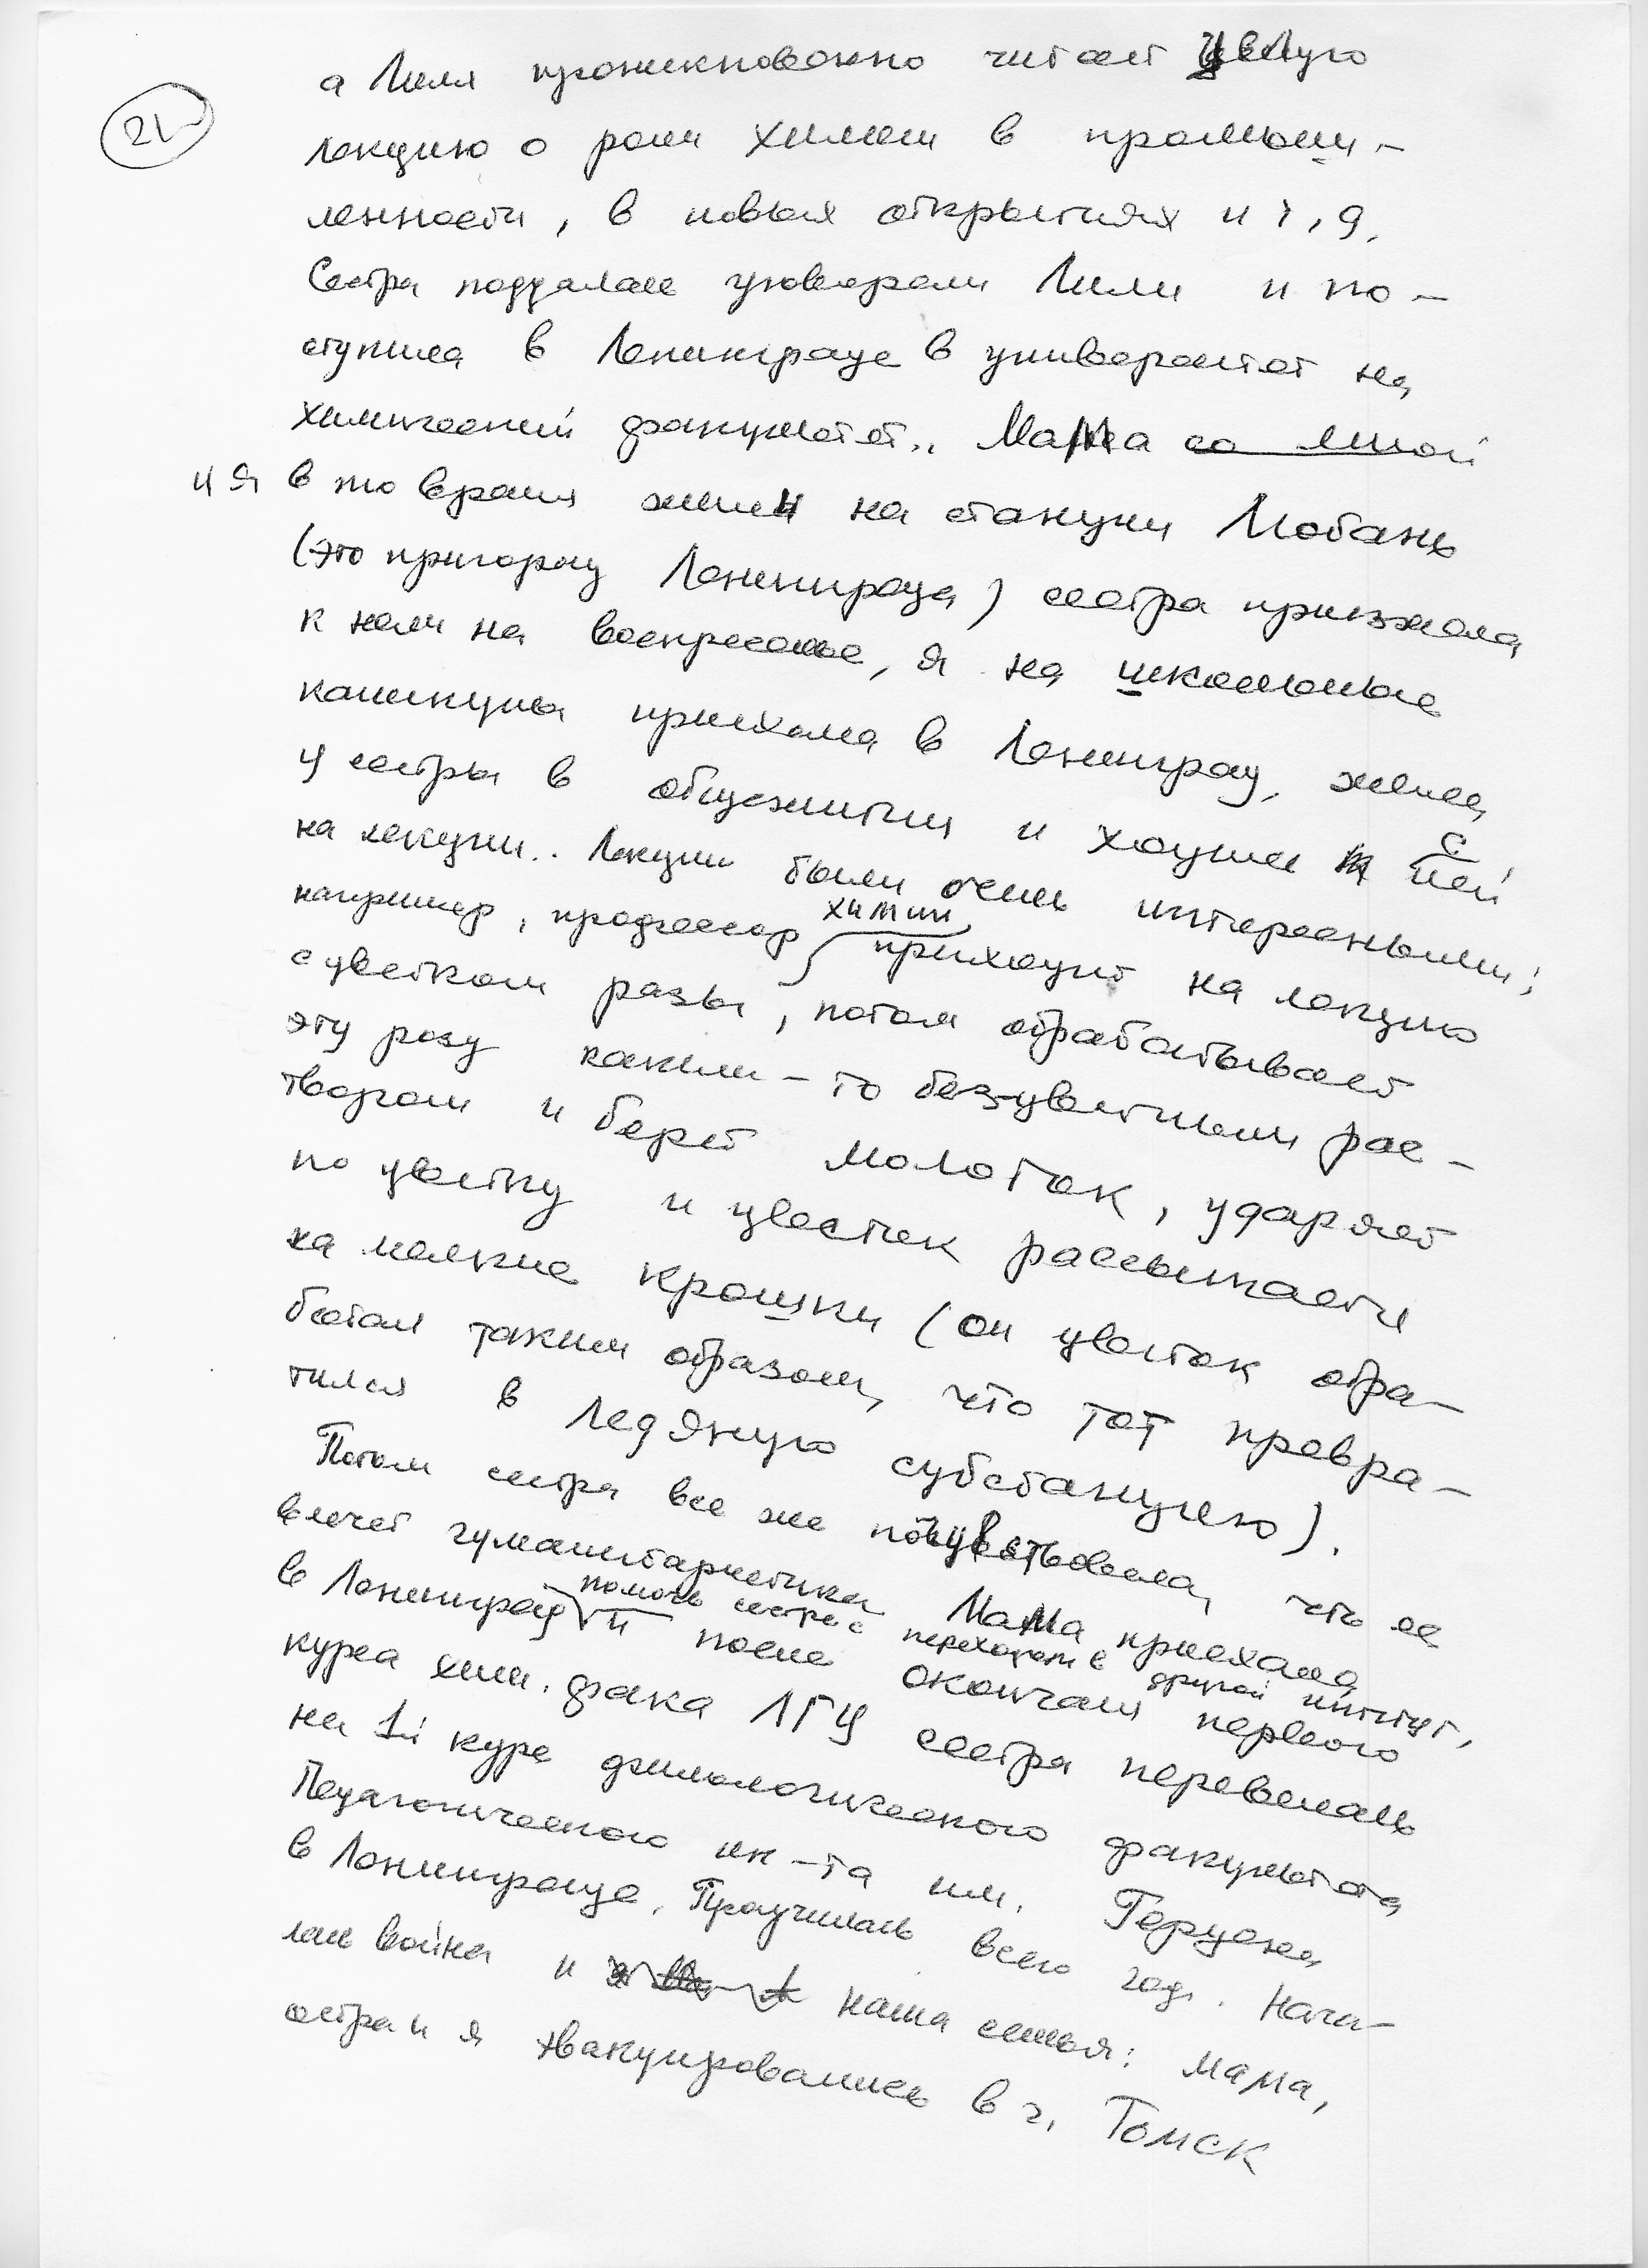 21
а Лиля проникновенно читает целую
лекцию о роли химии в промыш-
ленности, в новых открытиях и т, д.
Сестра поддалась уговорам Лили и по-
ступила в Ленинграде в университет на
химический факультет.. Мама со мной
и я в то время жили на станции Любань
(это пригород Ленинграда) сестра приезжала
к нам на воскресенье, я на школьные
каникулы приехала в Ленинград, жила
у сестры в общежитии и ходила с ней
на лекции.. Лекции были очень интересными;
например, профессор химии приходит на лекцию
с цветком розы, потом обрабатывает
эту розу каким-то безцветным рас-
твором и берет молоток, ударяет
по цветку и цветок рассыпается
на мелкие крошки (он цветок обра-
ботал таким образом, что тот превра-
тился в ледяную субстанцию).
Потом сестра все же почувствовала, что ее
влечет гуманитаристика Мама приехала
в Ленинград помочь сестре с переходом в другой институт,
и после окончания первого
курса хим. фака ЛГУ сестра перевелась
на 1й курс филологического факультета
Педагогического ин-та им. Герцена
в Ленинграде. Проучилась всего год. Нача-
лась война и наша семья: мама,
сестра и я эвакуировались в г. Томск